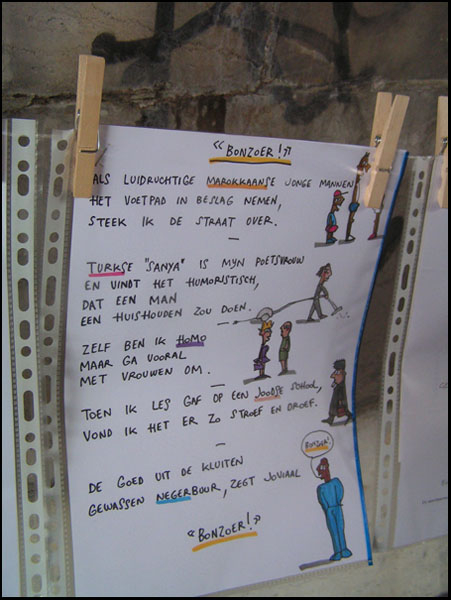 « BONZOER !»
ALS LUIDRUCHTIGE MAROKKAANSE JONGE MANNEN
HET VOETPAD IN BESLAG NEMEN,
STEEK IK DE STRAAT OVER.
—
TURKSE "SANYA" IS MYN POETSVROUW
EN VINDT HET HUMORISTISCH,
DAT EEN MAN
EEN HUISHOUDEN ZOU DOEN.
—
ZELF BEN IK HOMO
MAAR GA VOORAL
MET VROUWEN OM.
—
TOEN IK LES GAF OP EEN JOODSE SCHOOL,
VOND IK HET ER ZO STROEF EN DROEF.
—
BONZOER!
DE GOED UIT DE KLUITEN
GEWASSEN NEGERBOUR, ZEGT JOVIAAL
« BONZOER!»